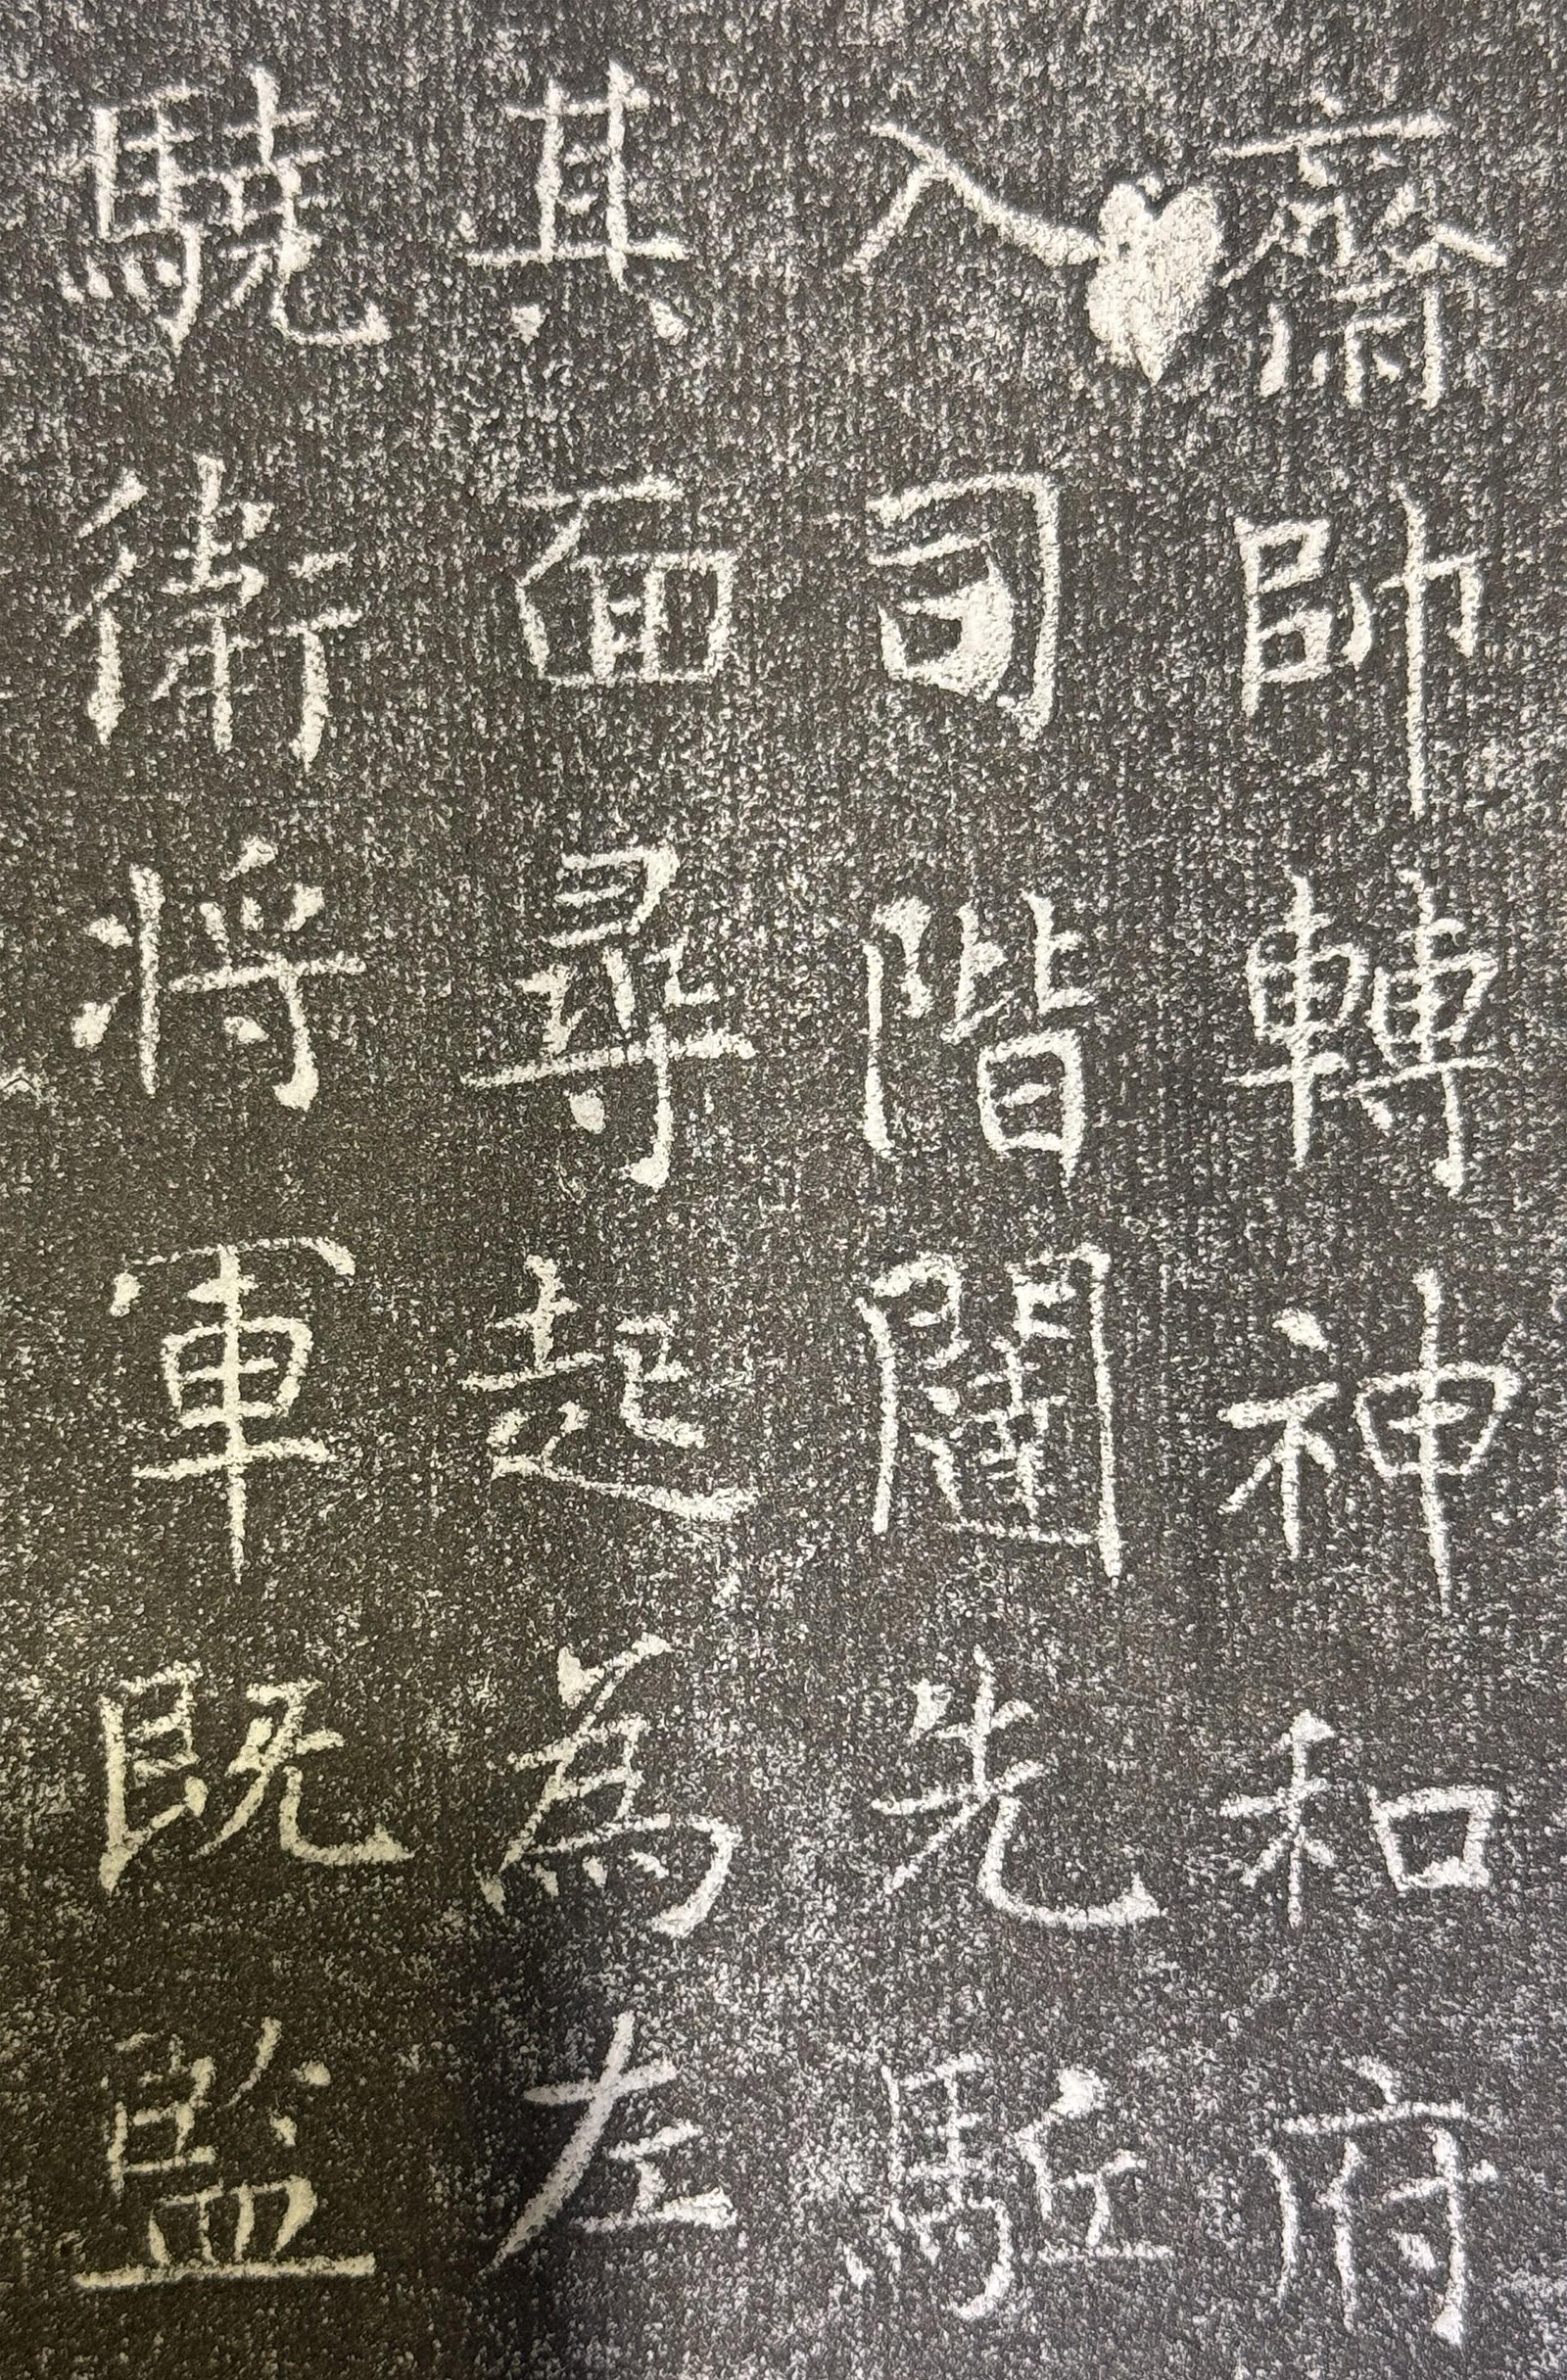 齋帥轉神和府
入司階闥先駈
其面尋起為左
驍衛將軍既監